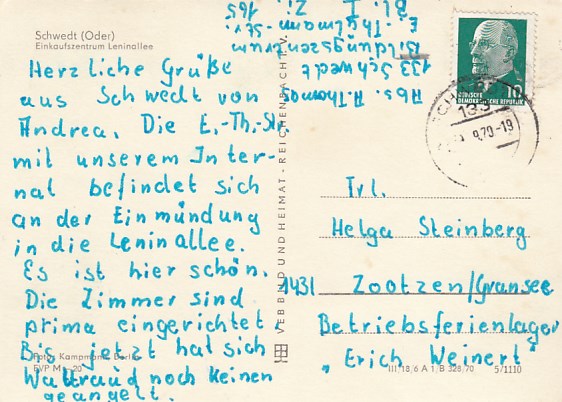 Schwedt (Oder)
Einkaufszentrum Leninallee
Herzliche Grüße
aus Schwedt von
Andrea. Die E.-Th.-Str.
mit unserem Inter-
nat befindet sich
an der Einmündung
in die Leninallee.
Es ist hier schön.
Die Zimmer sind
prima eingerichtet.
Bis jetzt hat sich
Waltraud noch keinen
geangelt.
Foto: Kampmann, Berlin
20
VEB BILD UND HEIMAT · REICHENBACH I. V.
Abs. A. Thomas
133 Schwedt
Bildungszentrum
E.-Thälmann-Str.
Bl. I Zi. 165
10
DEUTSCHE
DEMOKRATISCHE REPUBLIK
133
9.70-19
Frl.
Helga Steinberg
1431 Zootzen/Gransee
Betriebsferienlager
"Erich Weinert"
III 18/6 A 1/B 328/70 5/1110